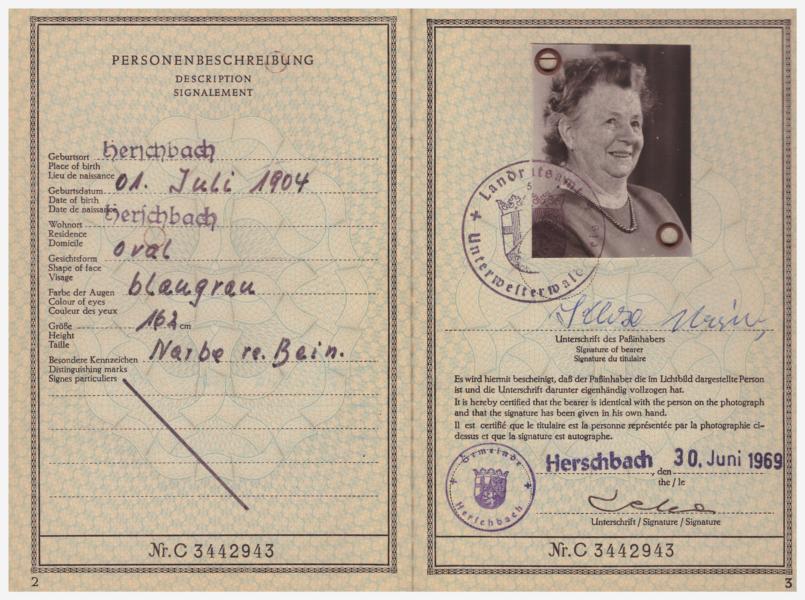 PERSONENBESCHREIBUNG
DESCRIPTION
SIGNALEMENT
Geburtsort Herschbach
Place of birth
Lieu de naissance
Geburtsdatum 01. Juli 1904
Date of birth
Date de naissance
Wohnort Herschbach
Residence
Domicile
Gesichtsform oval
Shape of face
Visage
Farbe der Augen blaugrau
Colour of eyes
Couleur des yeux
Größe 162 cm
Height
Taille
Besondere Kennzeichen Narbe re. Bein.
Distinguishing marks
Signes particuliers
Nr. C 3442943
2
Landratsamt
Unterwesterwald
Unterschrift des Paßinhabers
Signature of bearer
Signature du titulaire
Es wird hiermit bescheinigt, daß der Paßinhaber die im Lichtbild dargestellte Person
ist und die Unterschrift darunter eigenhändig vollzogen hat.
It is hereby certified that the bearer is identical with the person on the photograph
and that the signature has been given in his own hand.
Il est certifié que le titulaire est la personne représentée par la photographie ci-
dessus et que la signature est autographe.
Gemeinde
Herschbach
Herschbach, den 30. Juni 1969
the / le
Unterschrift / Signature / Signature
Nr. C 3442943
3